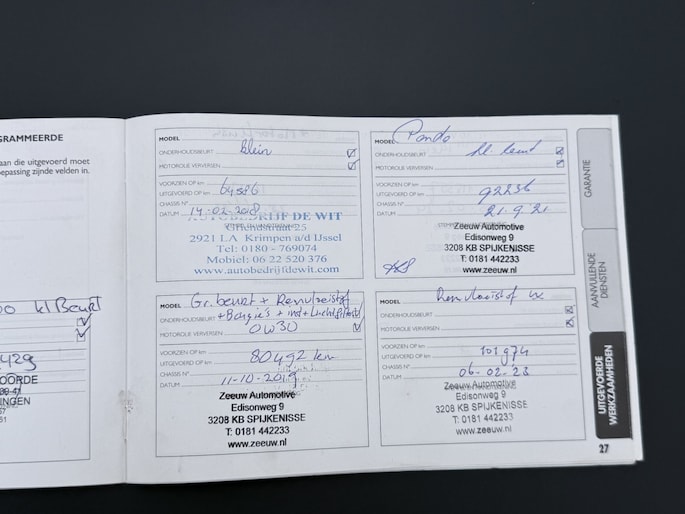 GRAMMEERDE
aan die uitgevoerd moet
epassing zijnde velden in.
kl Beurt
OORDE
39-41
INGEN
57
61
MODEL
ONDERHOUDSBEURT klein
MOTOROLIE VERVERSEN
VOORZIEN OP km
UITGEVOERD OP km
CHASSIS Nº
DATUM 14-02-2018
AUTOBEDRIJF DE WIT
2921 LA Krimpen a/d IJssel
Tel: 0180 - 769074
Mobiel: 06 22 520 376
www.autobedrijfdewit.com
MODEL Panda
ONDERHOUDSBEURT kl beurt
MOTOROLIE VERVERSEN
VOORZIEN OP km
UITGEVOERD OP km 92236
CHASSIS Nº
DATUM 21-9-'21
Zeeuw Automotive
Edisonweg 9
3208 KB SPIJKENISSE
T: 0181 442233
www.zeeuw.nl
MODEL Gr. beurt + Remvloeistof
ONDERHOUDSBEURT + Bougie's +
MOTOROLIE VERVERSEN 0W30
VOORZIEN OP km
UITGEVOERD OP km 80492 km
CHASSIS Nº
DATUM 11-10-2019
Zeeuw Automotive
Edisonweg 9
3208 KB SPIJKENISSE
T: 0181 442233
www.zeeuw.nl
MODEL Remvloeistof
ONDERHOUDSBEURT
MOTOROLIE VERVERSEN
VOORZIEN OP km
UITGEVOERD OP km 101974
CHASSIS Nº
DATUM 06-02-23
Zeeuw Automotive
Edisonweg 9
3208 KB SPIJKENISSE
T: 0181 442233
www.zeeuw.nl
GARANTIE
AANVULLENDE
DIENSTEN
UITGEVOERDE
WERKZAAMHEDEN
27